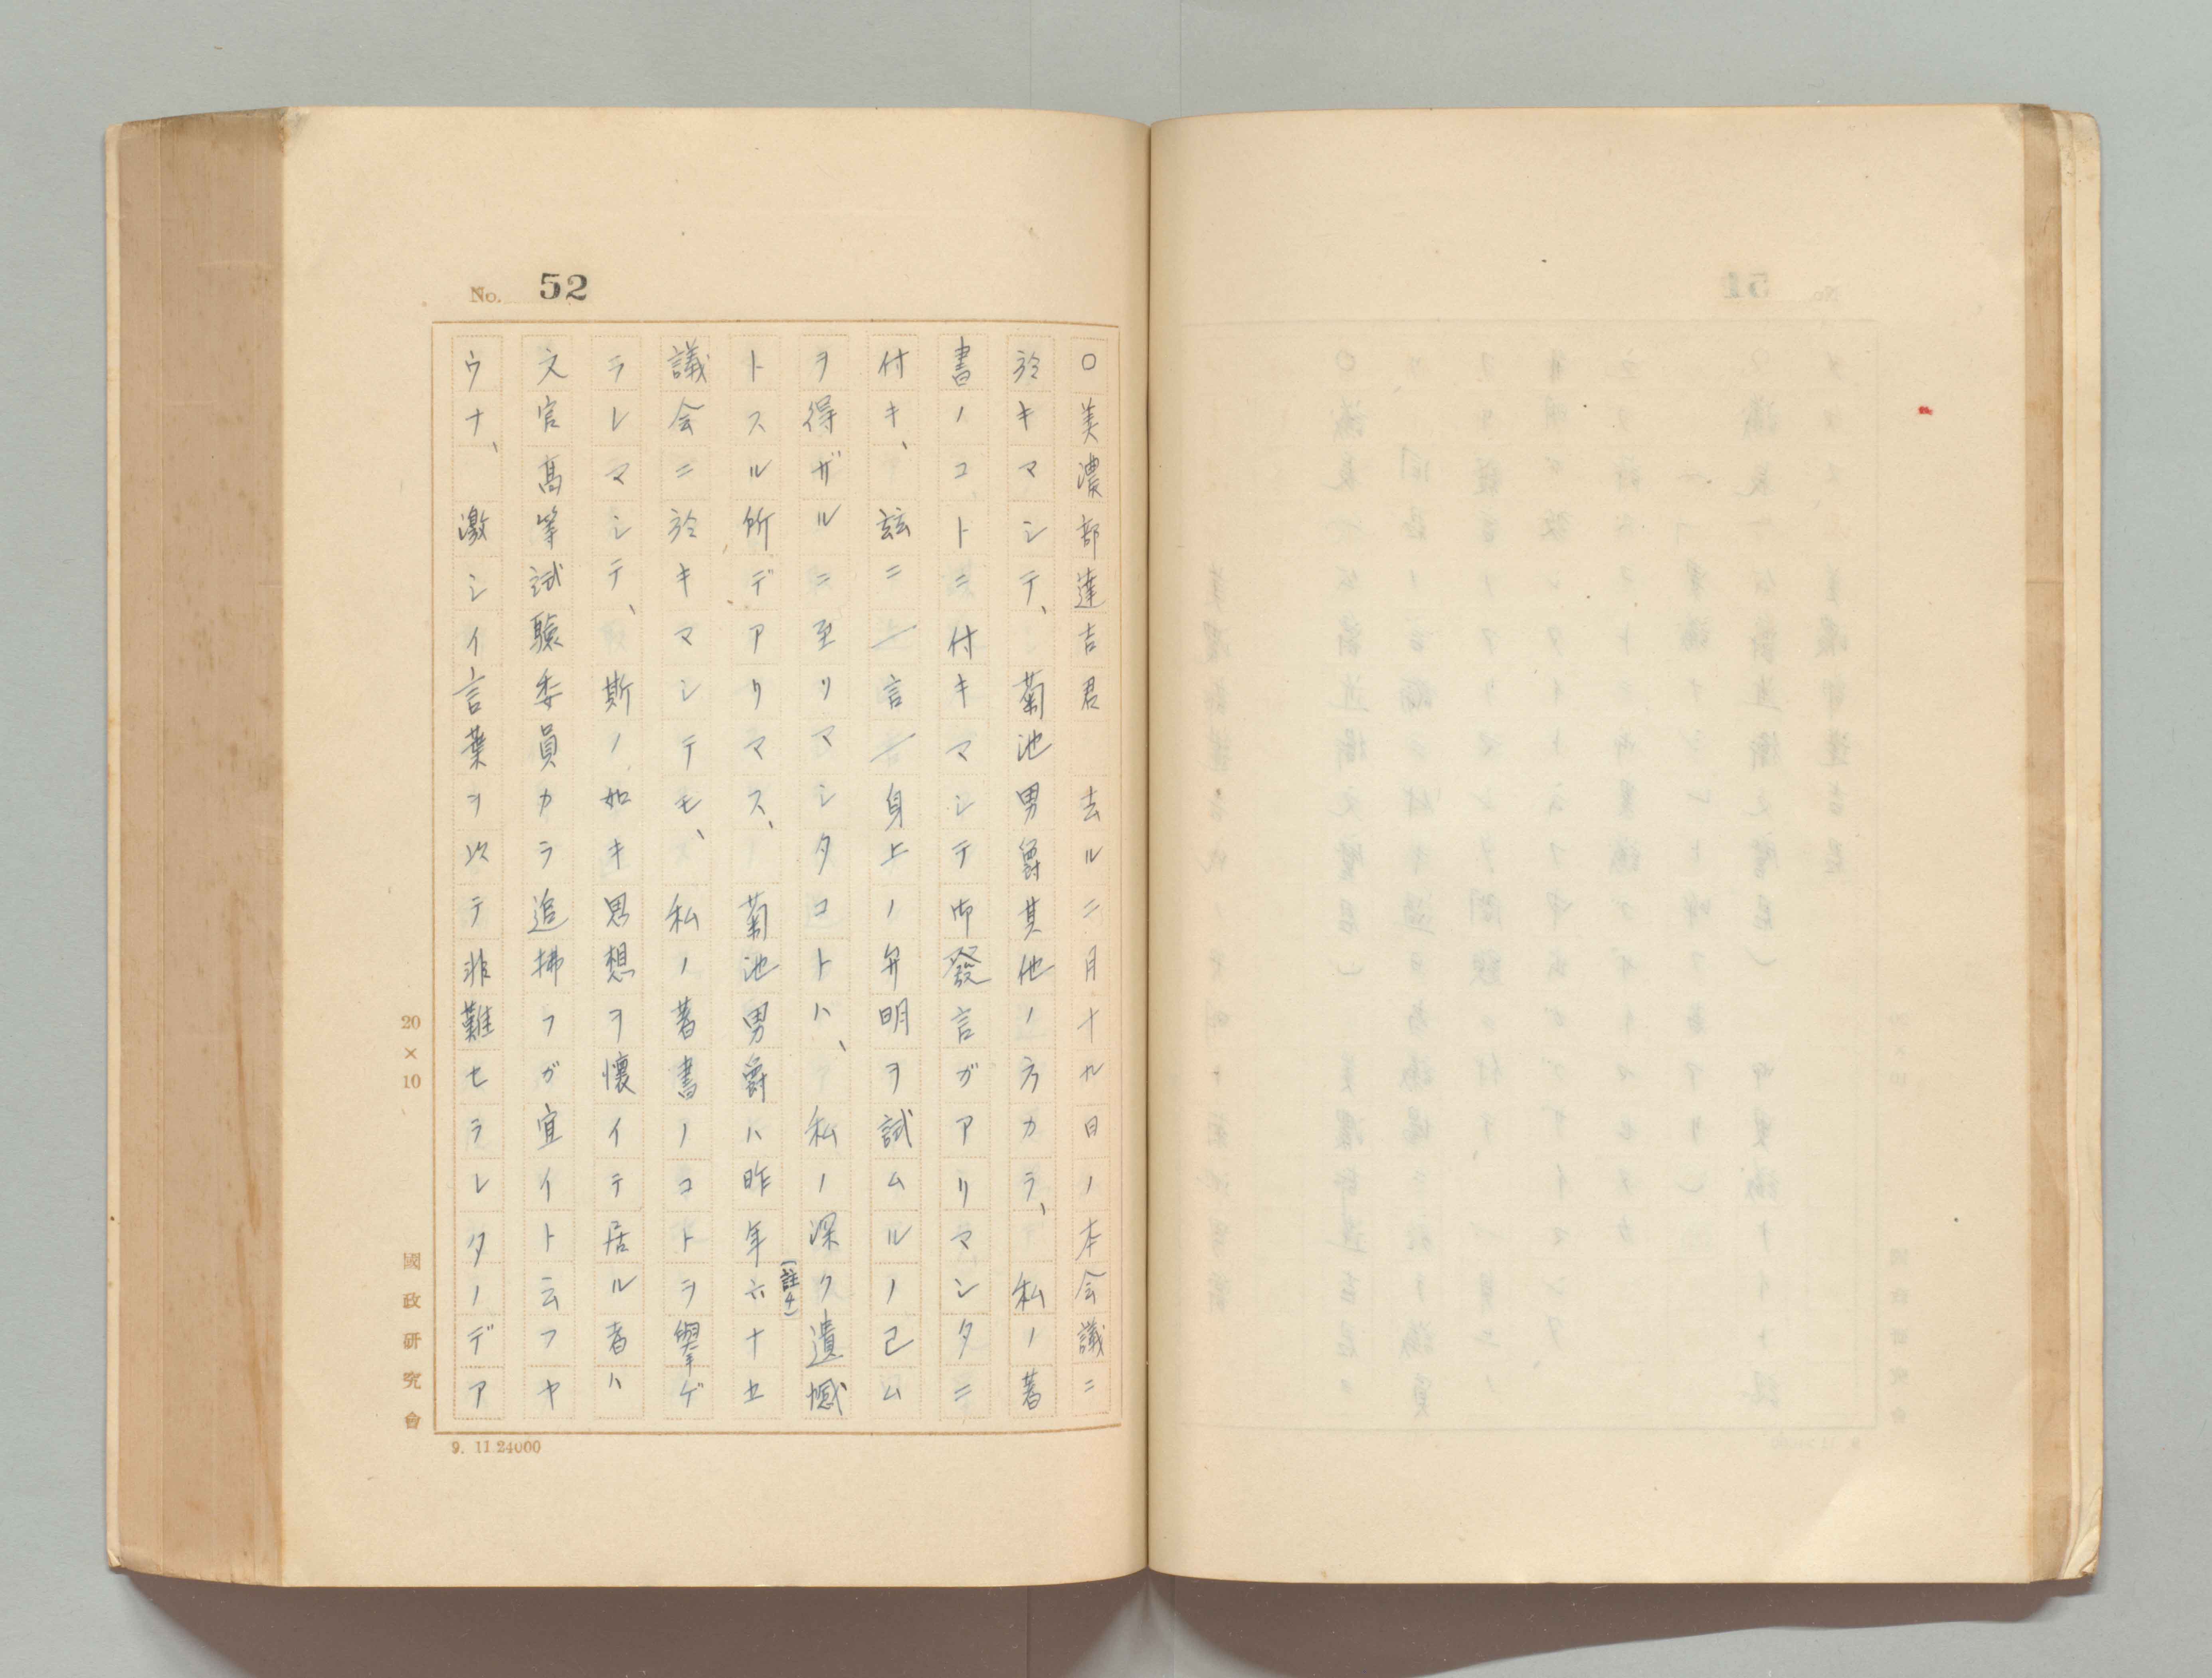 No. 52
○美濃部達吉君　去ル二月十九日ノ本会議ニ
於キマシテ、菊池男爵其他ノ方カラ、私ノ著
書ノコトニ付キマシテ御發言ガアリマシタニ
付キ、茲ニ一言一身上ノ弁明ヲ試ムルノ已ム
ヲ得ザルニ至リマシタコトハ、私ノ深ク遺憾
トスル所デアリマス、菊池男爵ハ昨年六十七
(註4)
議会ニ於キマシテモ、私ノ著書ノコトヲ擧ゲ
ラレマシテ、斯ノ如キ思想ヲ懐イテ居ル者ハ
文官高等試驗委員カラ追拂フガ宜イト云フヤ
ウナ、激シイ言葉ヲ以テ非難セラレタノデア
20×10
國政研究會
9. 11.24000